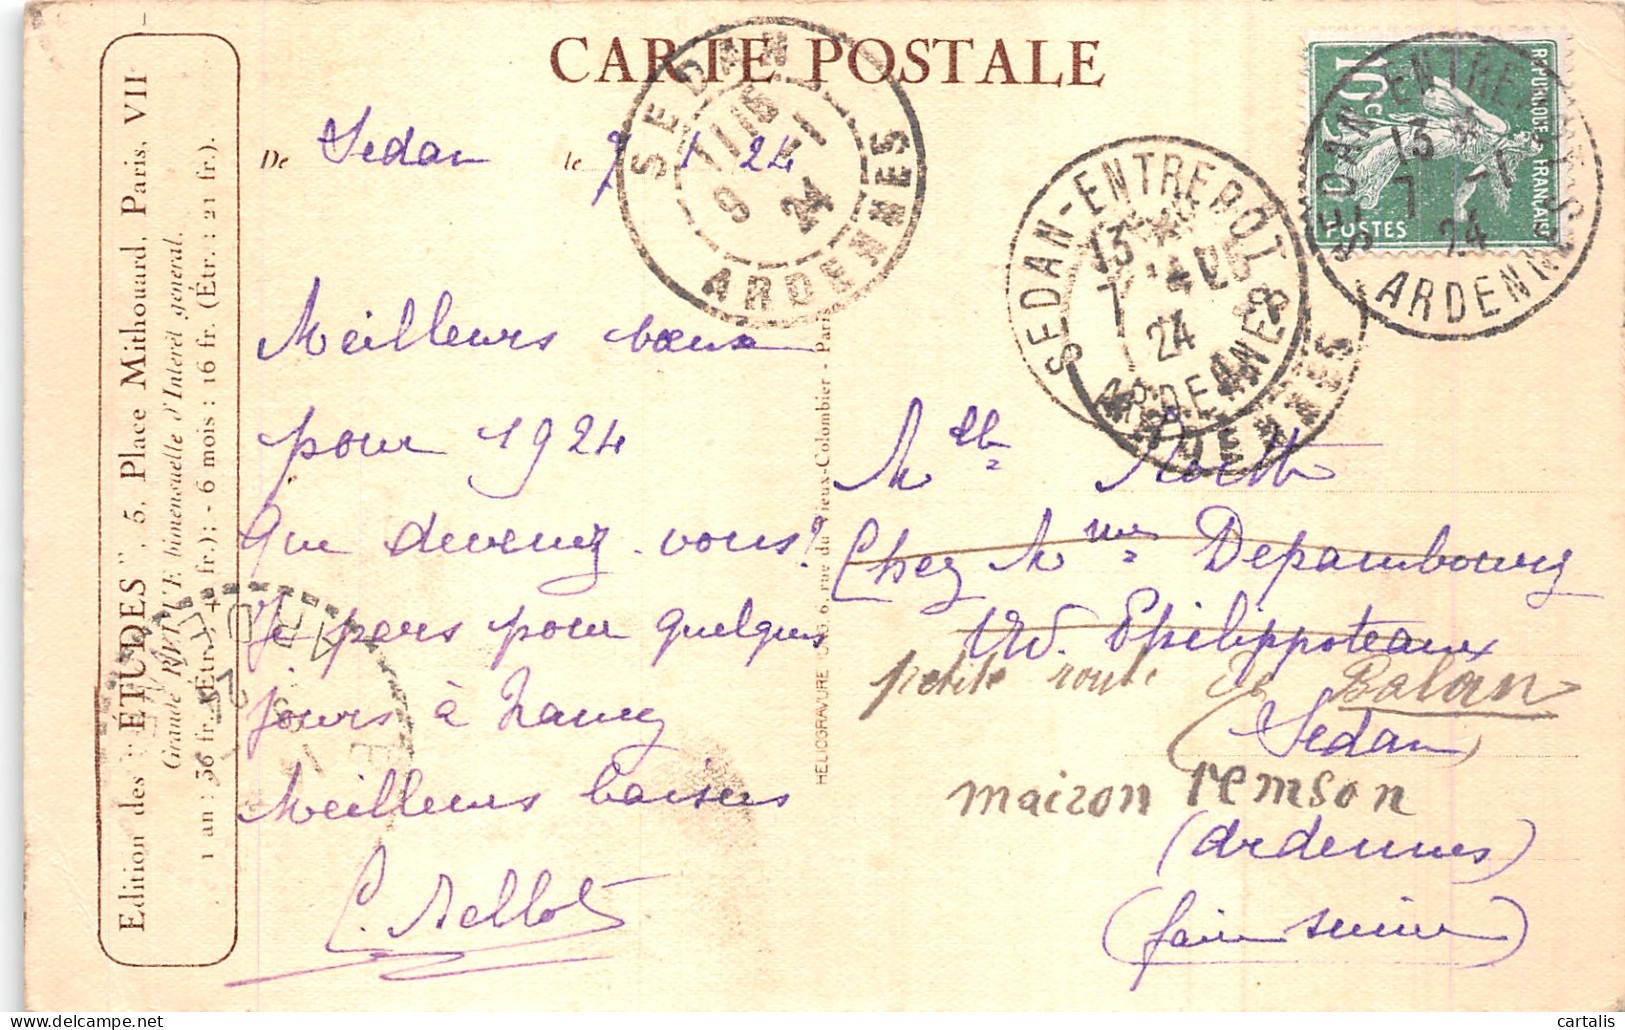 CARTE POSTALE
Edition des "ÉTUDES", 5, Place Mithouard, Paris, VII
Grande REVUE bimensuelle d'Intérêt général.
1 an : 36 fr. (Étr. : fr.); - 6 mois : 16 fr. (Étr. : 21 fr.).
De Sedan le 7 1 24
Meilleurs vœux
pour 1924
Que devenez-vous?
Je pars pour quelques
jours à Nancy
Meilleurs baisers
HÉLIOGRAVURE 6, rue du Vieux-Colombier - Paris
SEDAN
9 -1
24
ARDENNES
SEDAN-ENTREPOT
13
7
24
ARDENNES
10c
REPUBLIQUE FRANÇAISE
POSTES
SEDAN ENTREPOT
13 *
7 -1
24
ARDENNES
Mlle
Chez Mme Depambourg
Philippoteaux
petite route de Balan
(Sedan)
maizon remson
(Ardennes)
(faire suivre)
cartalis